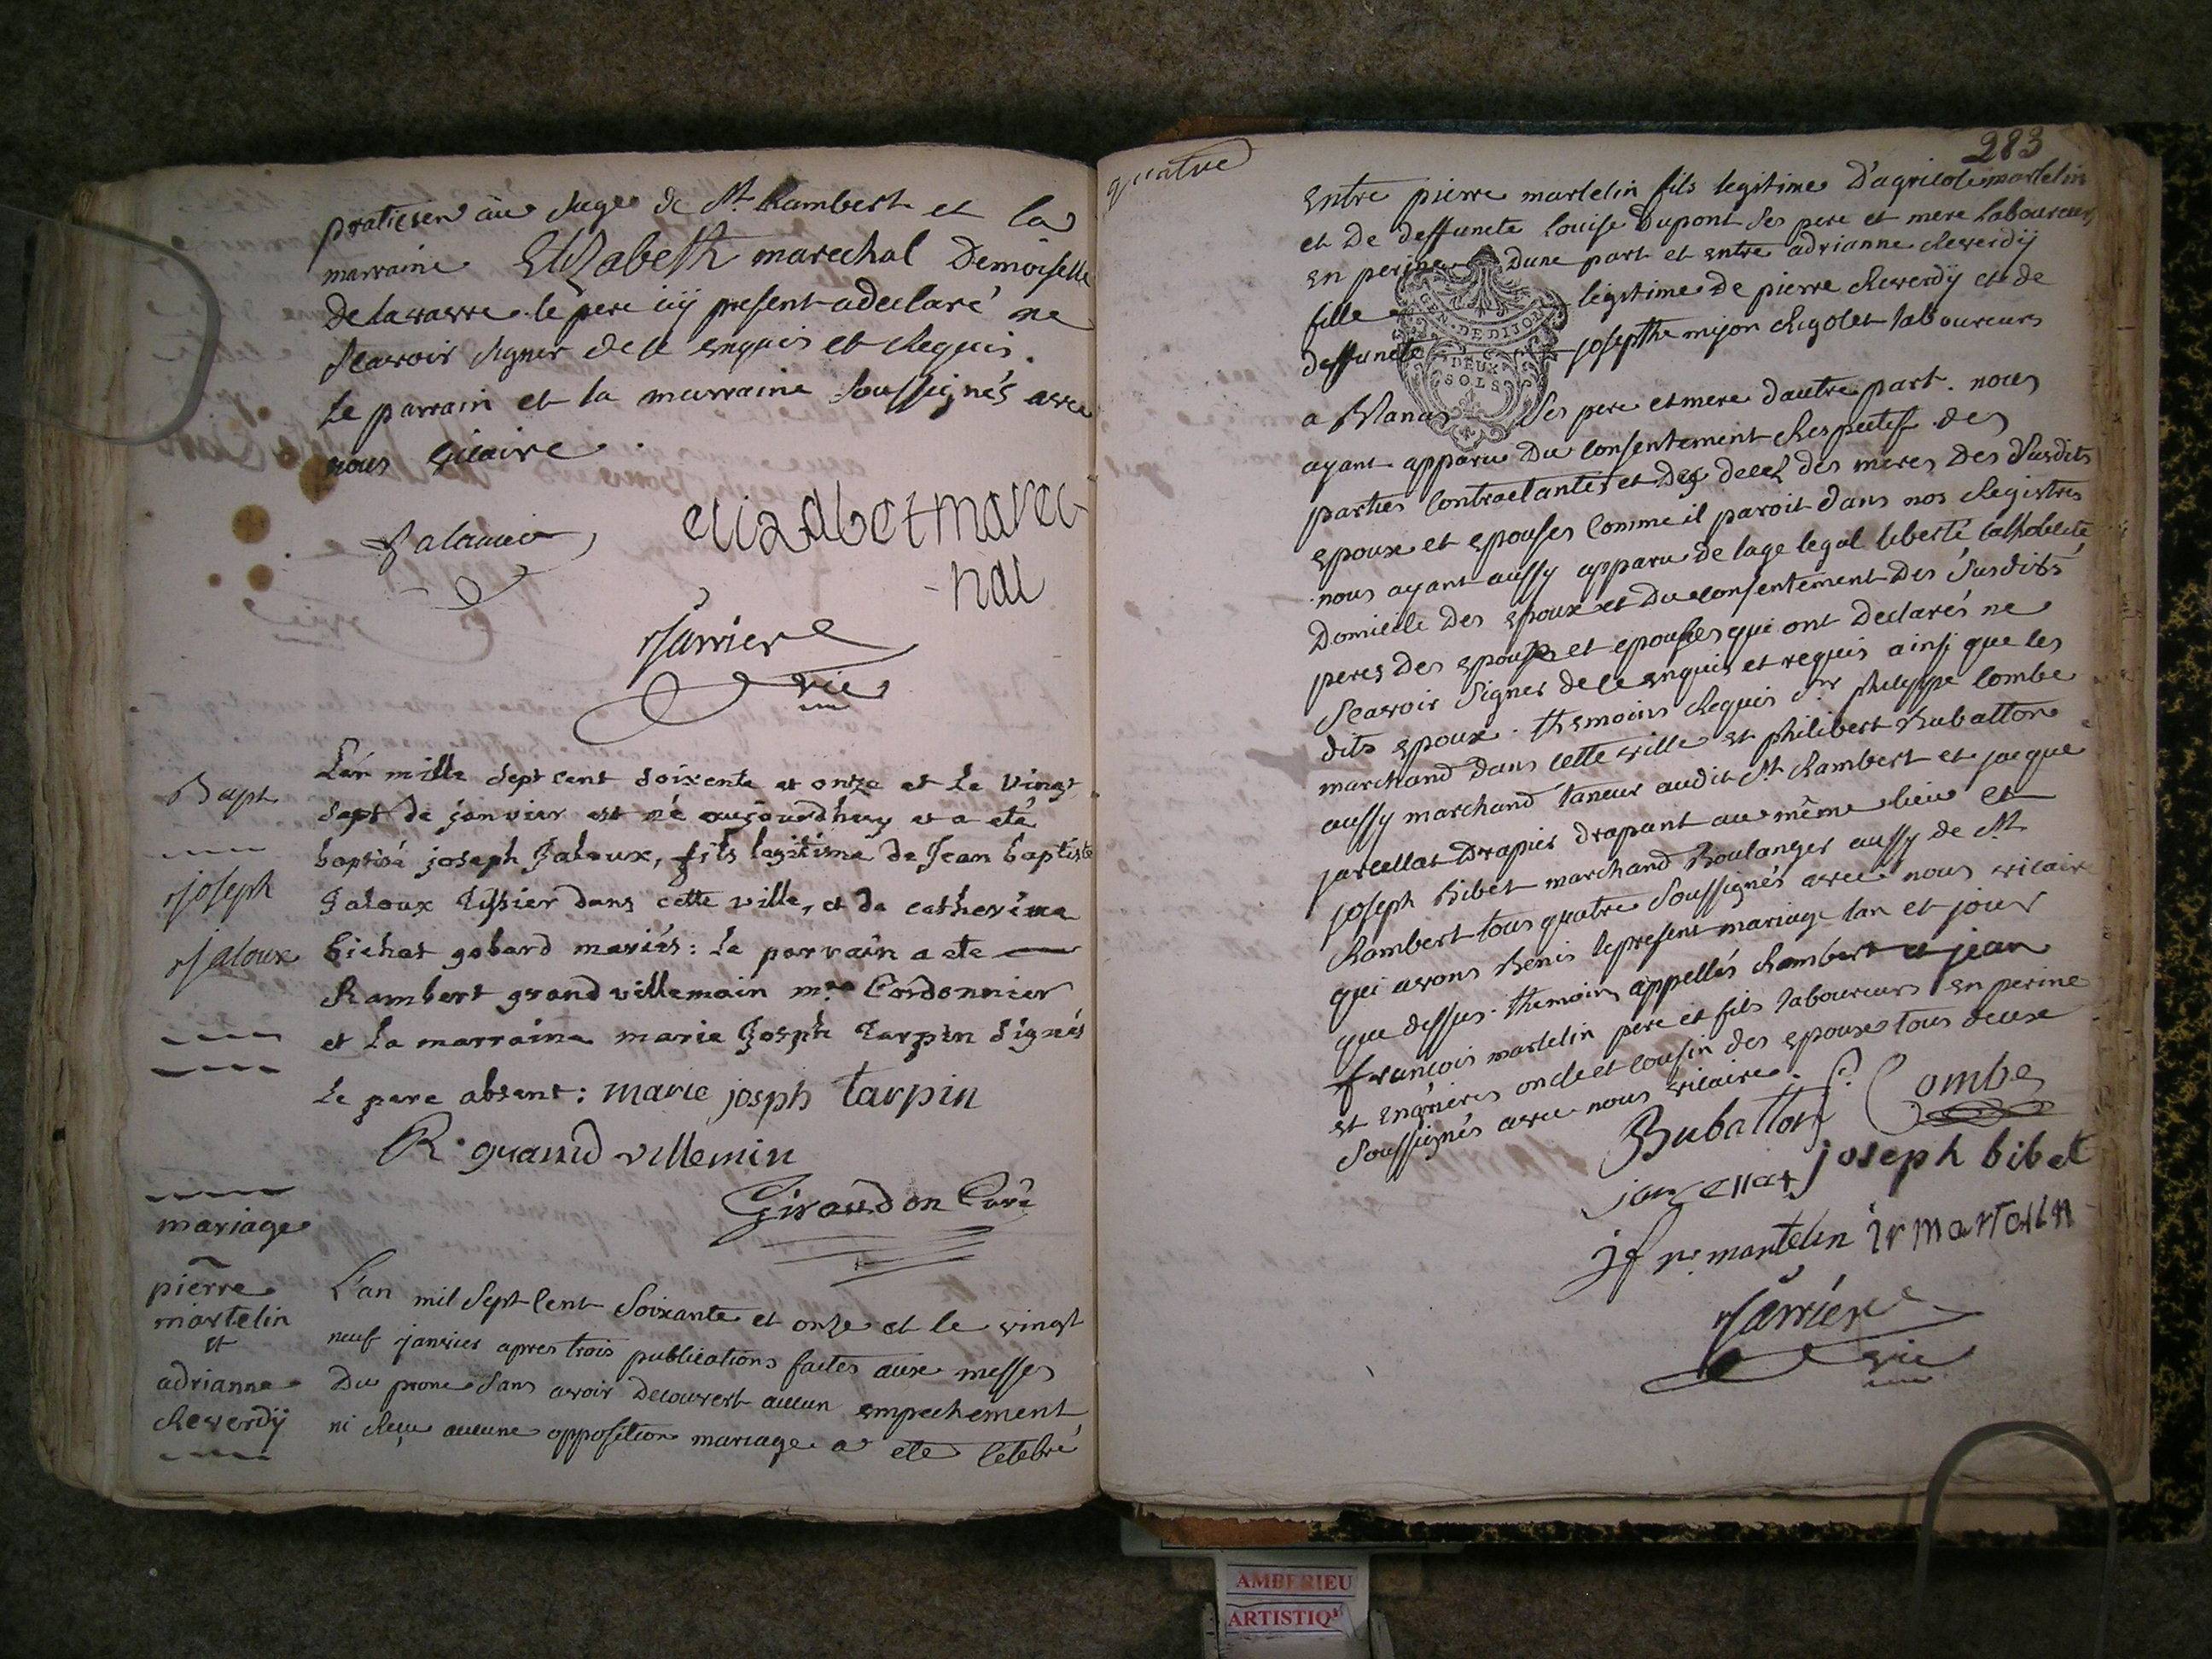 praticien au siege de St. Rambert et la
marraine Elizabeth marechal Demoiselle
le pere icy present a declaré ne
scavoir signer de ce enquis et requis.
Le parrain et la marraine soussignés avec
nous vicaire.
elizabet marec-
-hal
Jarrier
vic
Bapt
joseph
jaloux
L'an mille sept cent soixente et onze et le vingt
sept de janvier est né aujourdhuy et a eté
baptisé joseph Jaloux, fils legitime de Jean baptiste
Jaloux tissier dans cette ville, et de catherine
bichat gobard mariés: Le parrain a ete
Rambert grand villemain mtre Cordonnier
et la marraine marie Joseph tarpin signés
Le pere absent: marie joseph tarpin
R. grand villemin
Giraudon Curé
mariage
pierre
martelin
et
adrianne
Reverdÿ
L'an mil sept cent soixante et onze et le vingt
neuf janvier apres trois publications faites aux messes
Du prone sans avoir decouvert aucun empechement
ni reçu aucune opposition mariage a eté celebré
quatre
283
entre pierre martelin fils legitime D'agricole martelin
et De deffuncte louise Dupont ses pere et mere laboureurs
en perine Dune part et entre adrianne Reverdÿ
fille legitime De pierre Reverdÿ et de
deffuncte josepthe mijon Rigolet laboureurs
GEN. DE DIJON
DEUX
SOLS
a Blanas ses pere et mere d'autre part. nous
ayant apparu Du consentement Respectif des
parties contractantes et Des deces des meres Des susdits
epoux et epouses comme il paroit dans nos Registres
nous ayant aussy apparu de lage legal liberté catholicité
Domicile Des epoux et Du consentement Des susdits
peres Des epoux et epouses qui ont declarés ne
scavoir signer de ce enquis et requis ainsi que les
dits epoux. themoins Requis sr philippe Combe
marchand dans cette ville et philibert Buballon
aussy marchand taneur audit St Rambert et jacque
jarcellat Drapier drapant au même lieu et
joseph Bibet marchand Boulanger aussy de St
Rambert tous quatre soussignés avec nous vicaire
qui avons Benis le present mariage lan et jour
que dessus. themoins appellés Rambert et jean
francois martelin pere et fils laboureurs en perine
et oncle et cousin des epoux tous deux
soussignés avec nous vicaire. P. Combe
Buballon
jarcellat joseph bibet
jf martelin ir martelin
Jarrier
vic
AMBERIEU
ARTISTIQ